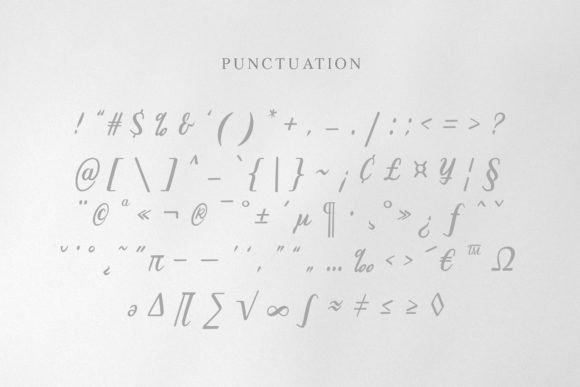 PUNCTUATION
! " # $ % & ' ( ) * + , – . / : ; < = > ?
@ [ \ ] ^ _ ` { | } ~ ¡ ¢ £ ¤ ¥ ¦ §
¨ © ª « ¬ ® ¯ ° ± ´ µ ¶ · ¸ º » ¿ ƒ ˆ ˇ
˘ ˙ ˚ ˛ ˜ ˝ π – — ‘ ’ ‚ “ ” „ … ‰ ‹ › ⁄ € ™ Ω
∂ ∆ ∏ ∑ √ ∞ ∫ ≈ ≠ ≤ ≥ ◊